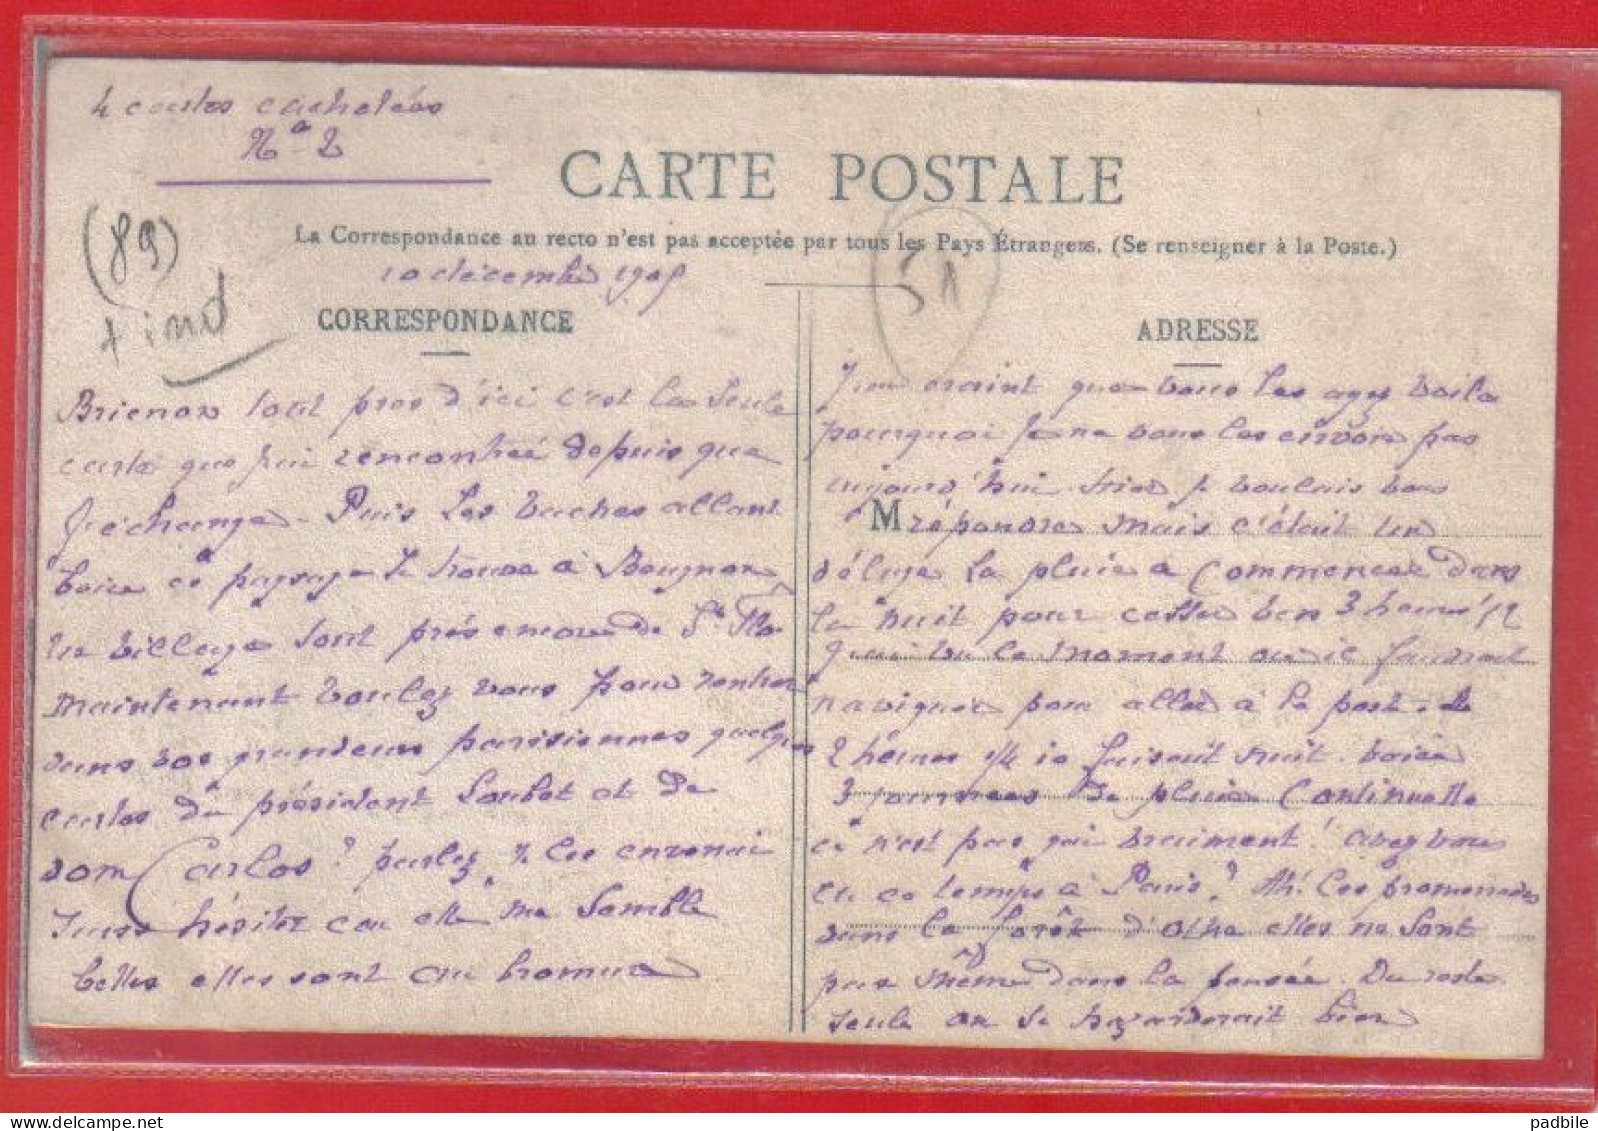 4 cartes cachetées
N° 2
CARTE POSTALE
La Correspondance au recto n'est pas acceptée par tous les Pays Étrangers. (Se renseigner à la Poste.)
(89)
+ ind
10 décembre 1905
CORRESPONDANCE
Brienon tout pres d'ici c'est la seule
carte que j'ai rencontrée depuis que
j'échange. Puis les vaches allant
boire ce paysage se trouve à Bougnon
un village tout près encore de St Flo
maintenant voulez vous pour rentrer
dans vos grandeurs parisiennes quelques
cartes du président Loubet et de
Dom Carlos? parlez je les enverrai
sans hésiter car elle me semble
belles elles sont au bromure
ADRESSE
craint que vous les ayez voila
pourquoi je ne vous les envoie pas
aujourd'hui. hier je voulais vous
M répondre mais c'était un
déluge la pluie a commencée dans
la nuit pour cesser vers 3 heures 1/2
le moment où il faudrait
naviguer pour aller à la poste. à
2 heures 1/4 il faisait nuit. voici
3 journées de pluie continuelle
ce n'est pas gai vraiment! avez vous
eu ce temps à Paris? Ah! les promenades
dans la forêt d'Othe elles ne sont
pas même dans la pensée. Du reste
seule on se hazarderait bien
padbile